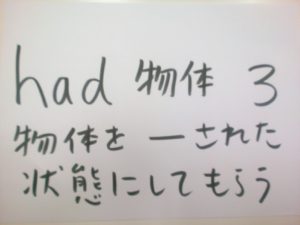 had 物体 3
物体を 一された
状態にしてもらう